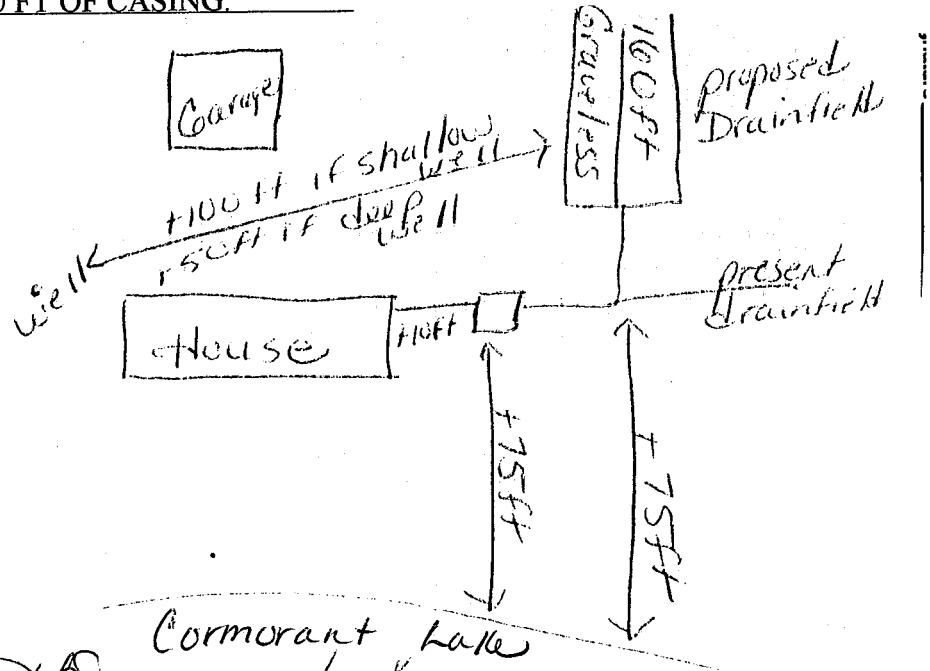 FT OF CASING.
Garage
160ft
Graveless
proposed
Drainfield
+100 ft if shallow
well
+50ft if deep
well
well
House
+10ft
present
drainfield
+75ft
+75ft
Cormorant Lake